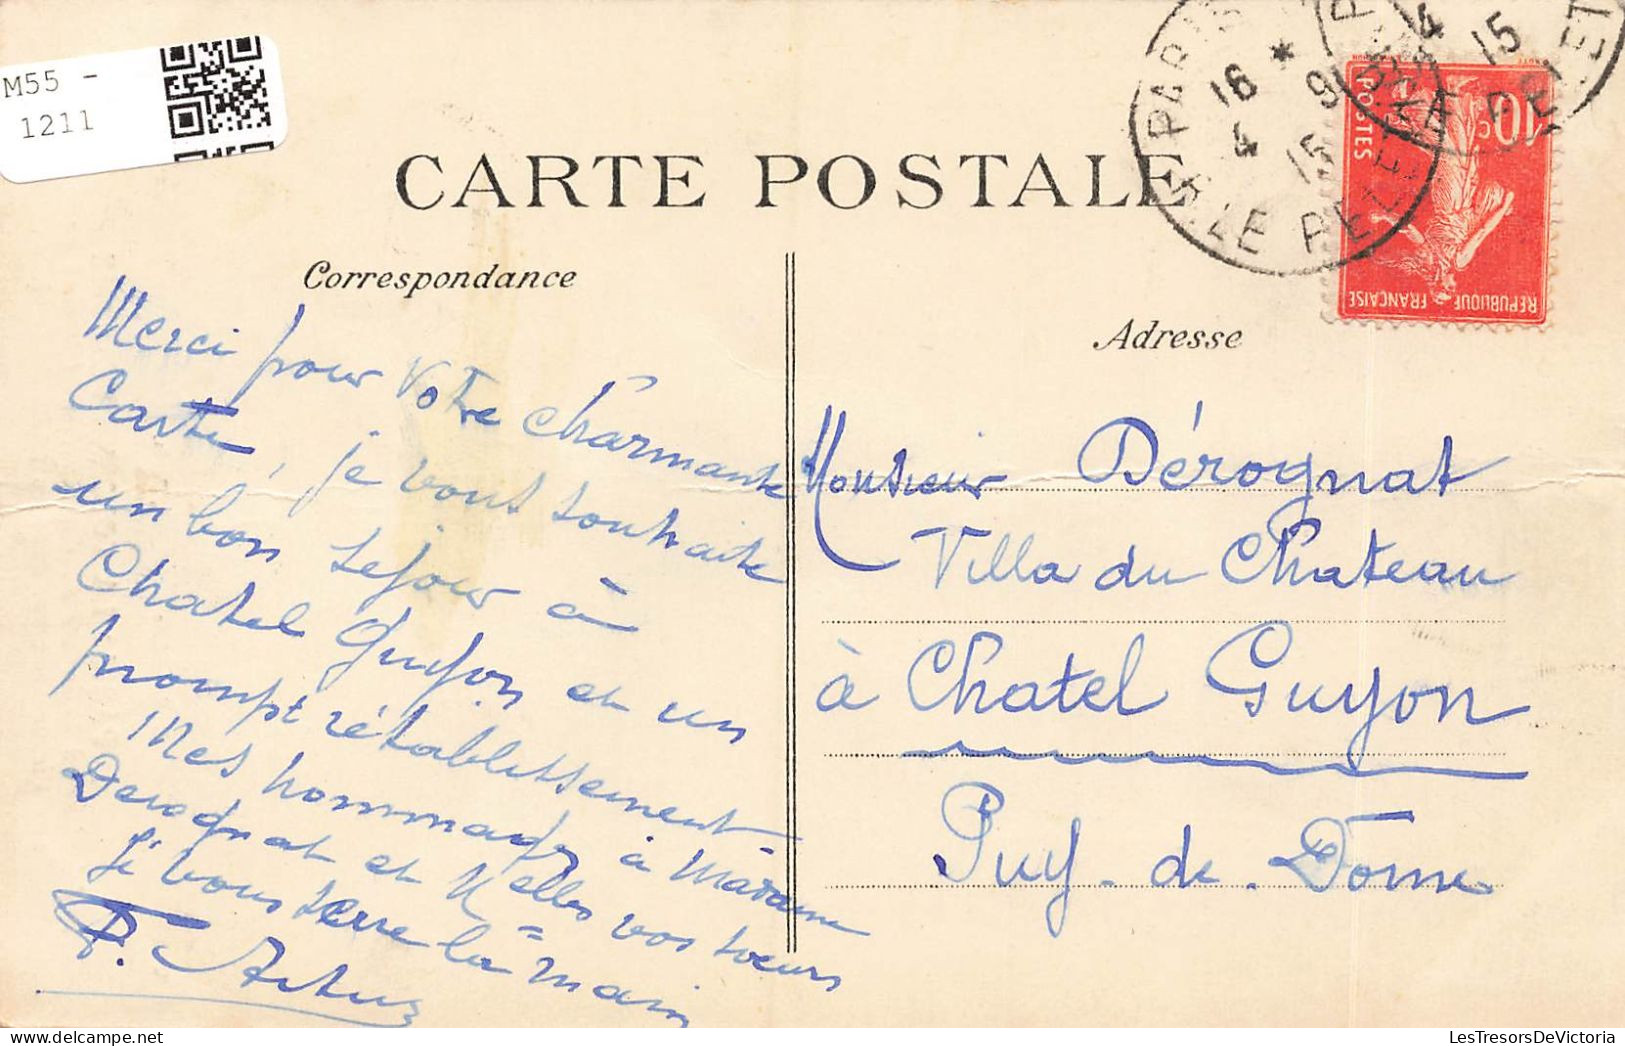 M55 -
1211
CARTE POSTALE
Correspondance
Adresse
10c
POSTES
REPUBLIQUE FRANÇAISE
PARIS
16 * 9
4 15
4
15
RUE LE PELETIER
Merci pour votre charmante
Carte, je vous souhaite
un bon sejour à
Chatel Guyon et un
prompt rétablissement.
Mes hommages à Madame
Derognat et Melles vos soeurs
Je vous serre la main
Monsieur Dérognat
Villa du Chateau
à Chatel Guyon
Puy-de-Dome
LesTresorsDeVictoria